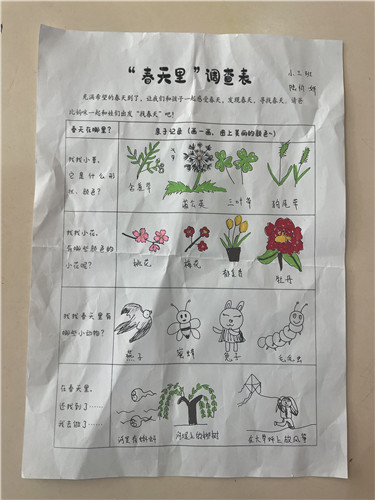 “春天里”调查表
小二班
充满希望的春天到了，让我们和孩子一起感受春天，发现春天，寻找春天。请爸
比妈咪一起和娃们出发“找春天”吧！
春天在哪里？
亲子记录（画一画，图上喜欢的颜色~）
找找小草，
它是什么形
状、颜色？
含羞草
蒲公英
三叶草
狗尾草
找找小花，
有哪些颜色的
小花呢？
桃花
梅花
郁金香
牡丹
找找春天里有
哪些小动物？
燕子
蜜蜂
兔子
毛毛虫
在春天里，
还找到了……
我去做了……
河里有蝌蚪
河堤上的柳树
在大草坪上放风筝